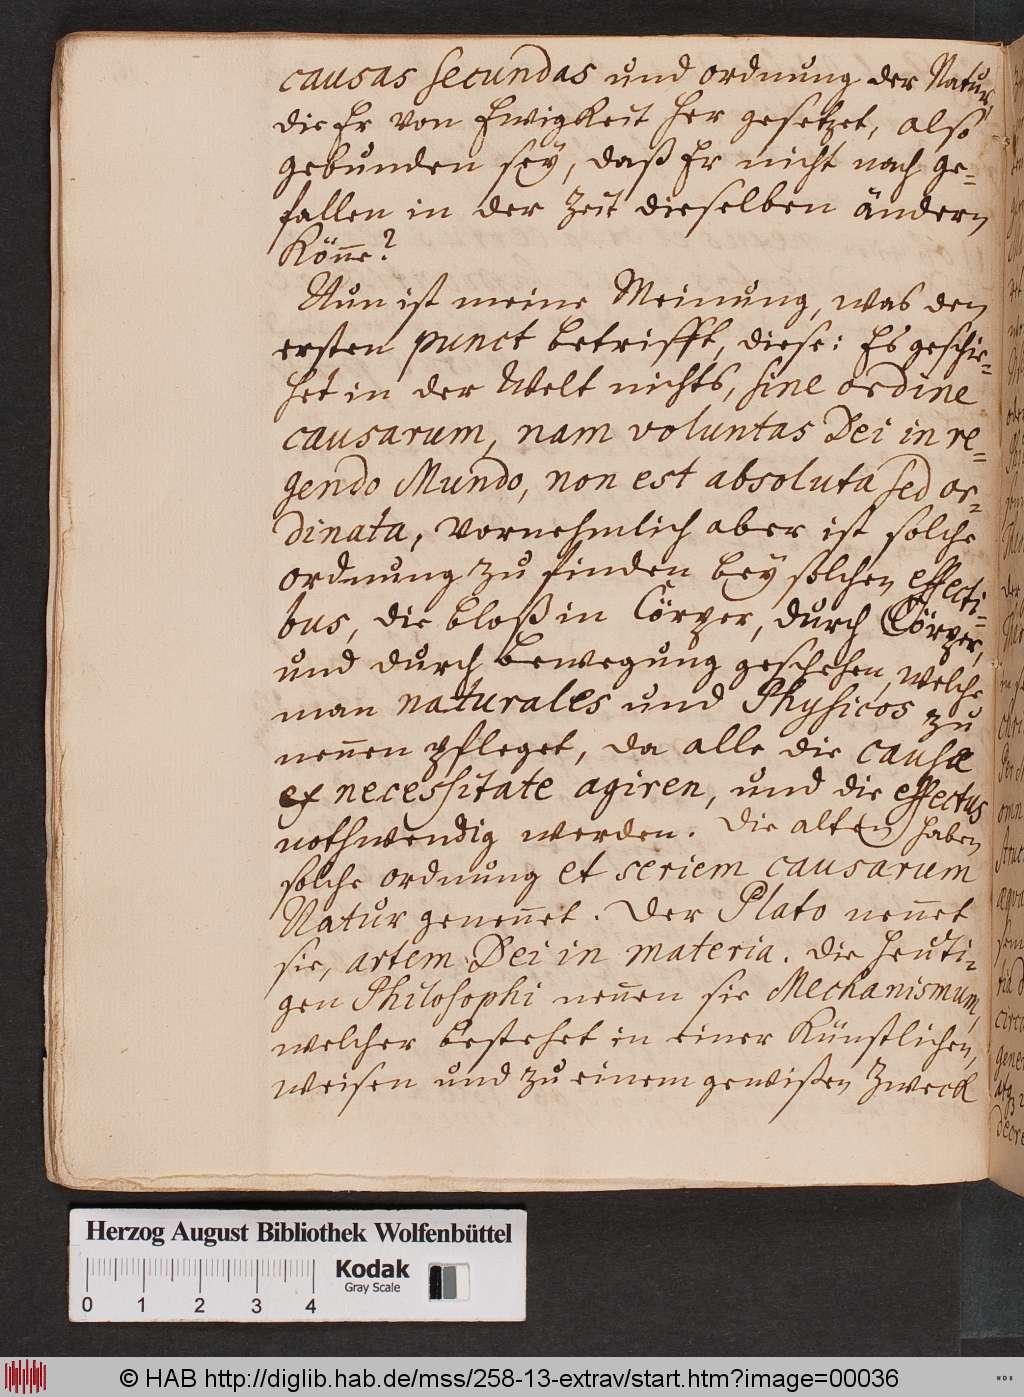 causas secundas und ordnung der Natur,
die Er von Ewigkeit her gesetzet, also
gebunden seÿ, daß Er nicht nach ge=
fallen in der Zeit dieselben ändern
Kön̄e?
Nun ist meine Meinung, was den
ersten punct betrifft, diese: Es geschie=
het in der Welt nichts, sine ordine
causarum, nam voluntas Dei in re=
gendo Mundo, non est absoluta sed or=
dinata, vornehmlich aber ist solche
ordnung zu finden beÿ solchen effecti=
bus, die bloß in Cörper, durch Cörper,
und durch bewegung geschehen, welche
man naturales und Physicos zu
nen̄en pfleget, da alle die causæ
ex necessitate agiren, und die effectus
nothwendig werden. Die alten haben
solche ordnung et seriem causarum
Natur genen̄et. Der Plato nen̄et
sie, artem Dei in materia. Die heuti=
gen Philosophi nen̄en sie Mechanismum,
welcher bestehet in einer Künstlichen,
weisen und zu einem gewißen Zweck
Herzog August Bibliothek Wolfenbüttel
Kodak
Gray Scale
0 1 2 3 4
© HAB http://diglib.hab.de/mss/258-13-extrav/start.htm?image=00036